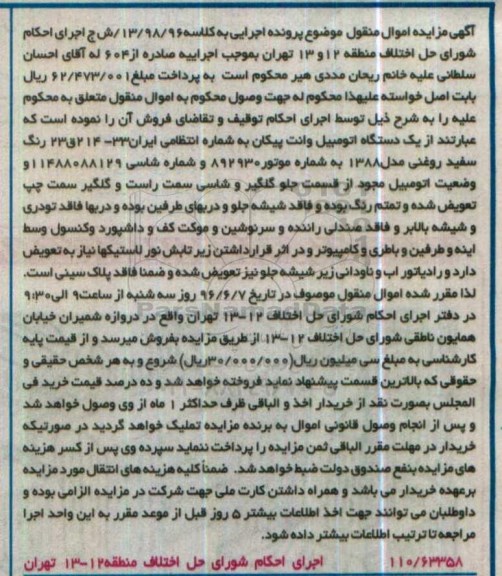 آگهی مزایده اموال منقول موضوع پرونده اجرایی به کلاسه۱۳/۹۸/۹۶/ش ح اجرای احکام
شورای حل اختلاف منطقه ۱۲و ۱۳ تهران بموجب اجراییه صادره از۶۰۴ له آقای احسان
سلطانی علیه خانم ریحان مددی هیر محکوم است به پرداخت مبلغ۶۲/۴۷۳/۰۰۱ ریال
بابت اصل خواسته علیهذا محکوم له جهت وصول محکوم به اموال منقول متعلق به محکوم
علیه را به شرح ذیل توسط اجرای احکام توقیف و تقاضای فروش آن را نموده است که
عبارتند از یک دستگاه اتومبیل وانت پیکان به شماره انتظامی ایران۳۳- ۲۱۴ق۲۳ رنگ
سفید روغنی مدل۱۳۸۸ به شماره موتور۸۹۲۹۳۰ و شماره شاسی ۱۱۴۸۸۰۸۸۱۲۹و
وضعیت اتومبیل مجود از قسمت جلو گلگیر و شاسی سمت راست و گلگیر سمت چپ
تعویض شده و تمتم رنگ بوده و فاقد شیشه جلو و دربهای طرفین بوده و دربها فاقد تودری
و شیشه بالابر و فاقد صندلی راننده و سرنوشین و موکت کف و داشپورد وکنسول وسط
اینه و طرفین و باطری و کامپیوتر و در اثر قرارداشتن زیر تابش نور لاستیکها نیاز به تعویض
دارد و رادیاتور اب و ناودانی زیر شیشه جلو نیز تعویض شده و ضمنا فاقد پلاک سینی است.
لذا مقرر شده اموال منقول موصوف در تاریخ ۹۶/۶/۷ روز سه شنبه از ساعت۹ الی۹:۳۰
در دفتر اجرای احکام شورای حل اختلاف ۱۲-۱۳ تهران واقع در دروازه شمیران خیابان
همایون ناطقی شورای حل اختلاف ۱۲-۱۳ از طریق مزایده بفروش میرسد و از قیمت پایه
کارشناسی به مبلغ سی میلیون ریال(۳۰/۰۰۰/۰۰۰ریال) شروع و به هر شخص حقیقی و
حقوقی که بالاترین قسمت پیشنهاد نماید فروخته خواهد شد و ده درصد قیمت خرید فی
المجلس بصورت نقد از خریدار اخذ و الباقی ظرف حداکثر ۱ ماه از وی وصول خواهد شد
و پس از انجام وصول قانونی اموال به برنده مزایده تملیک خواهد گردید در صورتیکه
خریدار در مهلت مقرر الباقی ثمن مزایده را پرداخت ننماید سپرده وی پس از کسر هزینه
های مزایده بنفع صندوق دولت ضبط خواهد شد. ضمناً کلیه هزینه های انتقال مورد مزایده
برعهده خریدار می باشد و همراه داشتن کارت ملی جهت شرکت در مزایده الزامی بوده و
داوطلبان می توانند جهت اخذ اطلاعات بیشتر ۵ روز قبل از موعد مقرر به این واحد اجرا
مراجعه تا ترتیب اطلاعات بیشتر داده شود.
۱۱۰/۶۳۳۵۸ اجرای احکام شورای حل اختلاف منطقه۱۲-۱۳ تهران